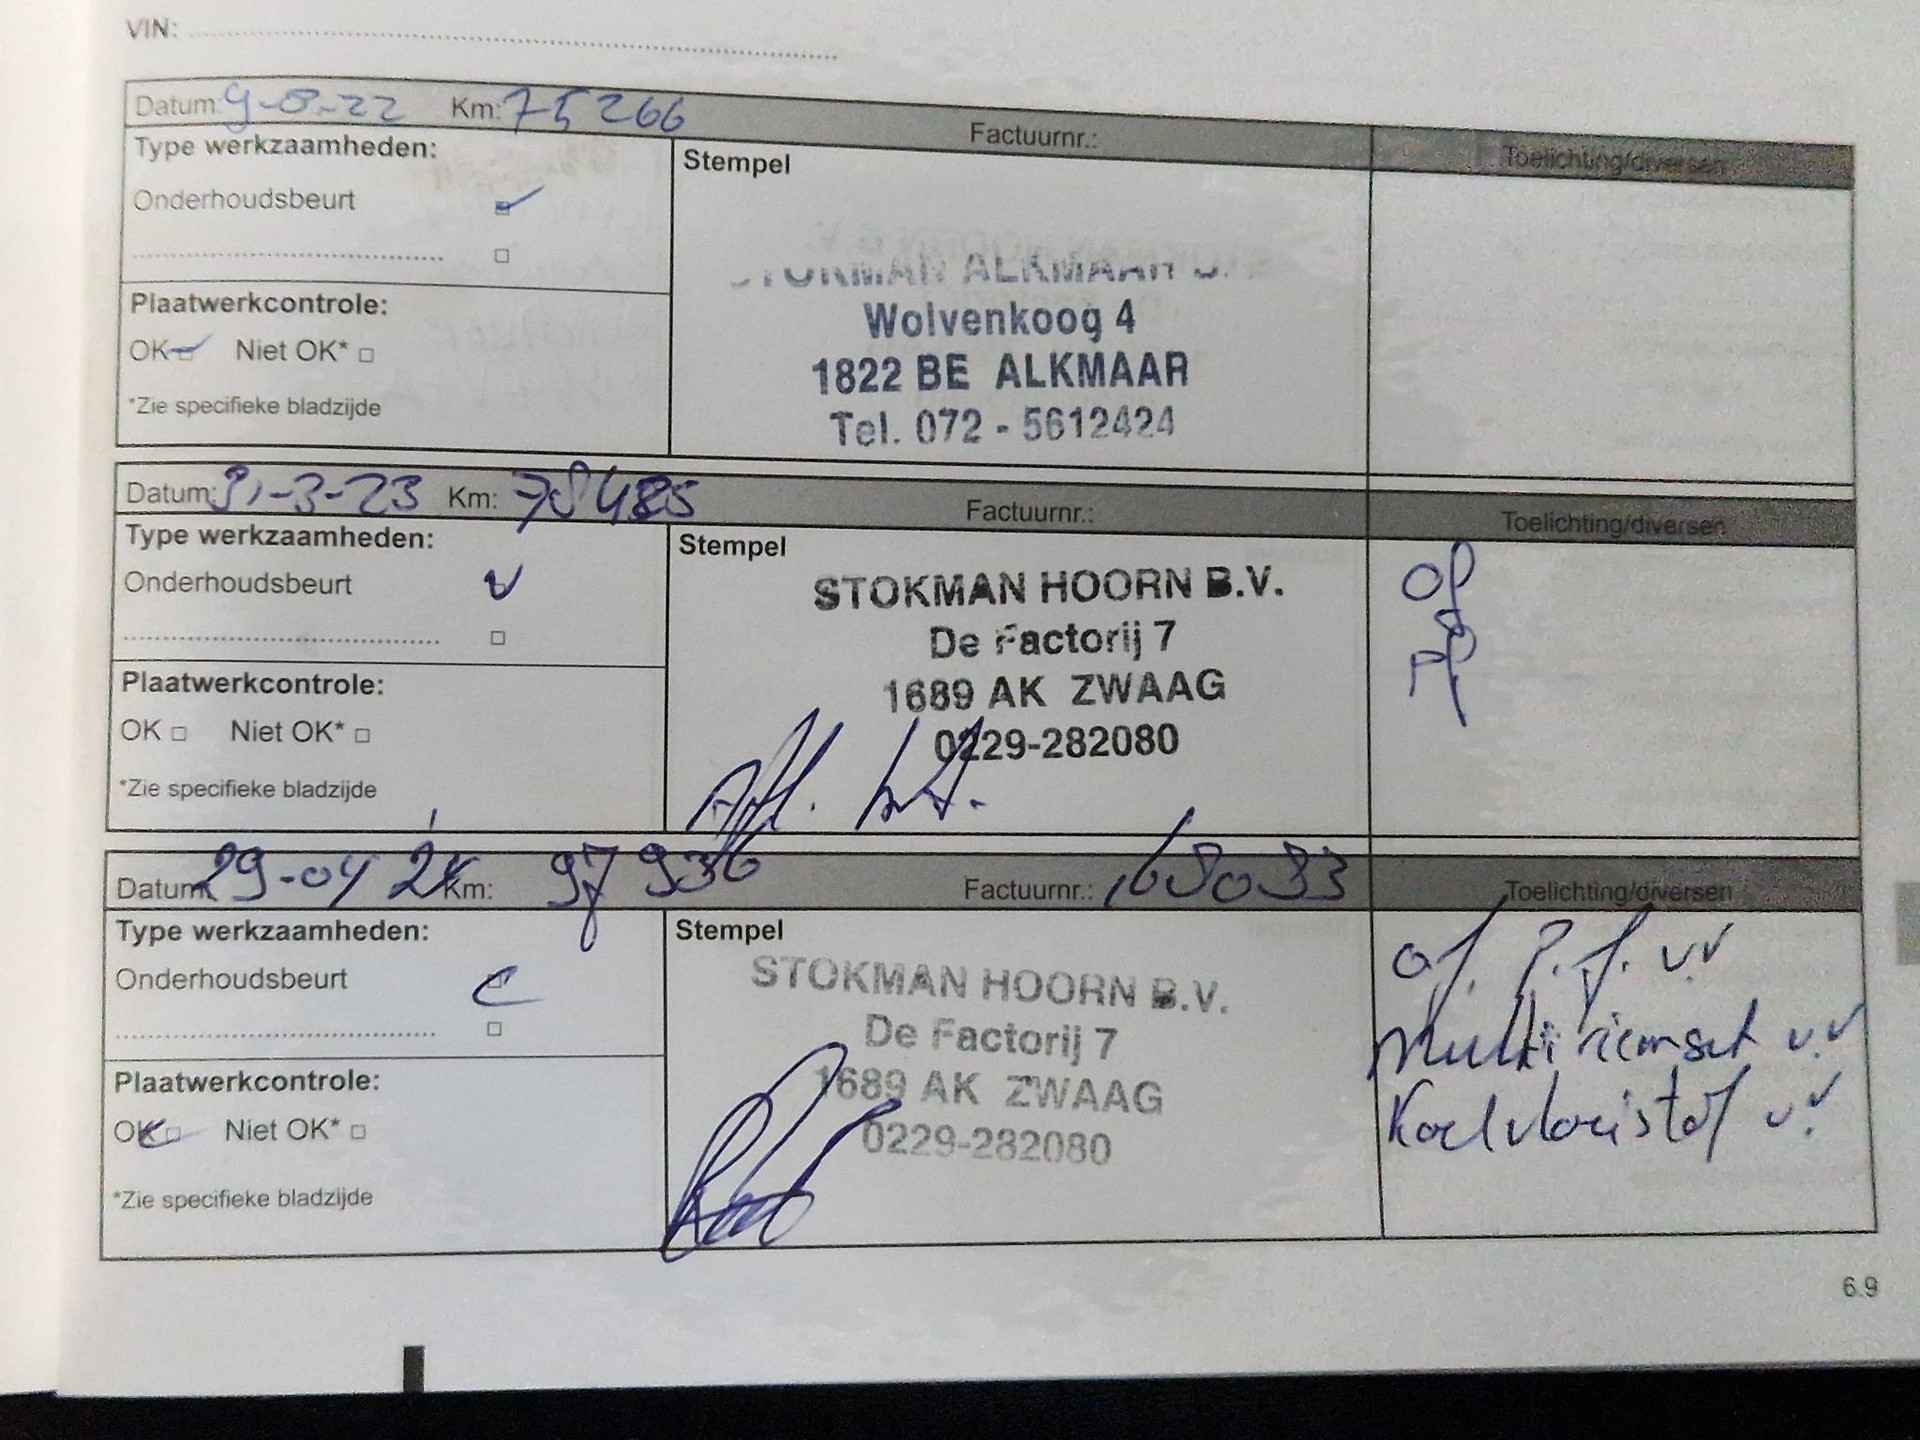 VIN:
Datum: 9-8-22 Km: 75266 Factuurnr.: Toelichting/diversen
Type werkzaamheden:
Stempel
Onderhoudsbeurt
STOKMAN ALKMAAR B.
Wolvenkoog 4
1822 BE ALKMAAR
Tel. 072 - 5612424
Plaatwerkcontrole:
OK Niet OK*
*Zie specifieke bladzijde
Datum: 31-3-23 Km: 78485 Factuurnr.: Toelichting/diversen
Type werkzaamheden:
Stempel
Onderhoudsbeurt
STOKMAN HOORN B.V.
De Factorij 7
1689 AK ZWAAG
0229-282080
Plaatwerkcontrole:
OK Niet OK*
*Zie specifieke bladzijde
Of
Pf
Datum: 29-04 24 Km: 97936 Factuurnr.: 168093 Toelichting/diversen
Type werkzaamheden:
Stempel
Onderhoudsbeurt
STOKMAN HOORN B.V.
De Factorij 7
1689 AK ZWAAG
0229-282080
Plaatwerkcontrole:
OK Niet OK*
*Zie specifieke bladzijde
of. P.f. v.v
Multiriemset v.v
Koelvloeistof v.v
6.9